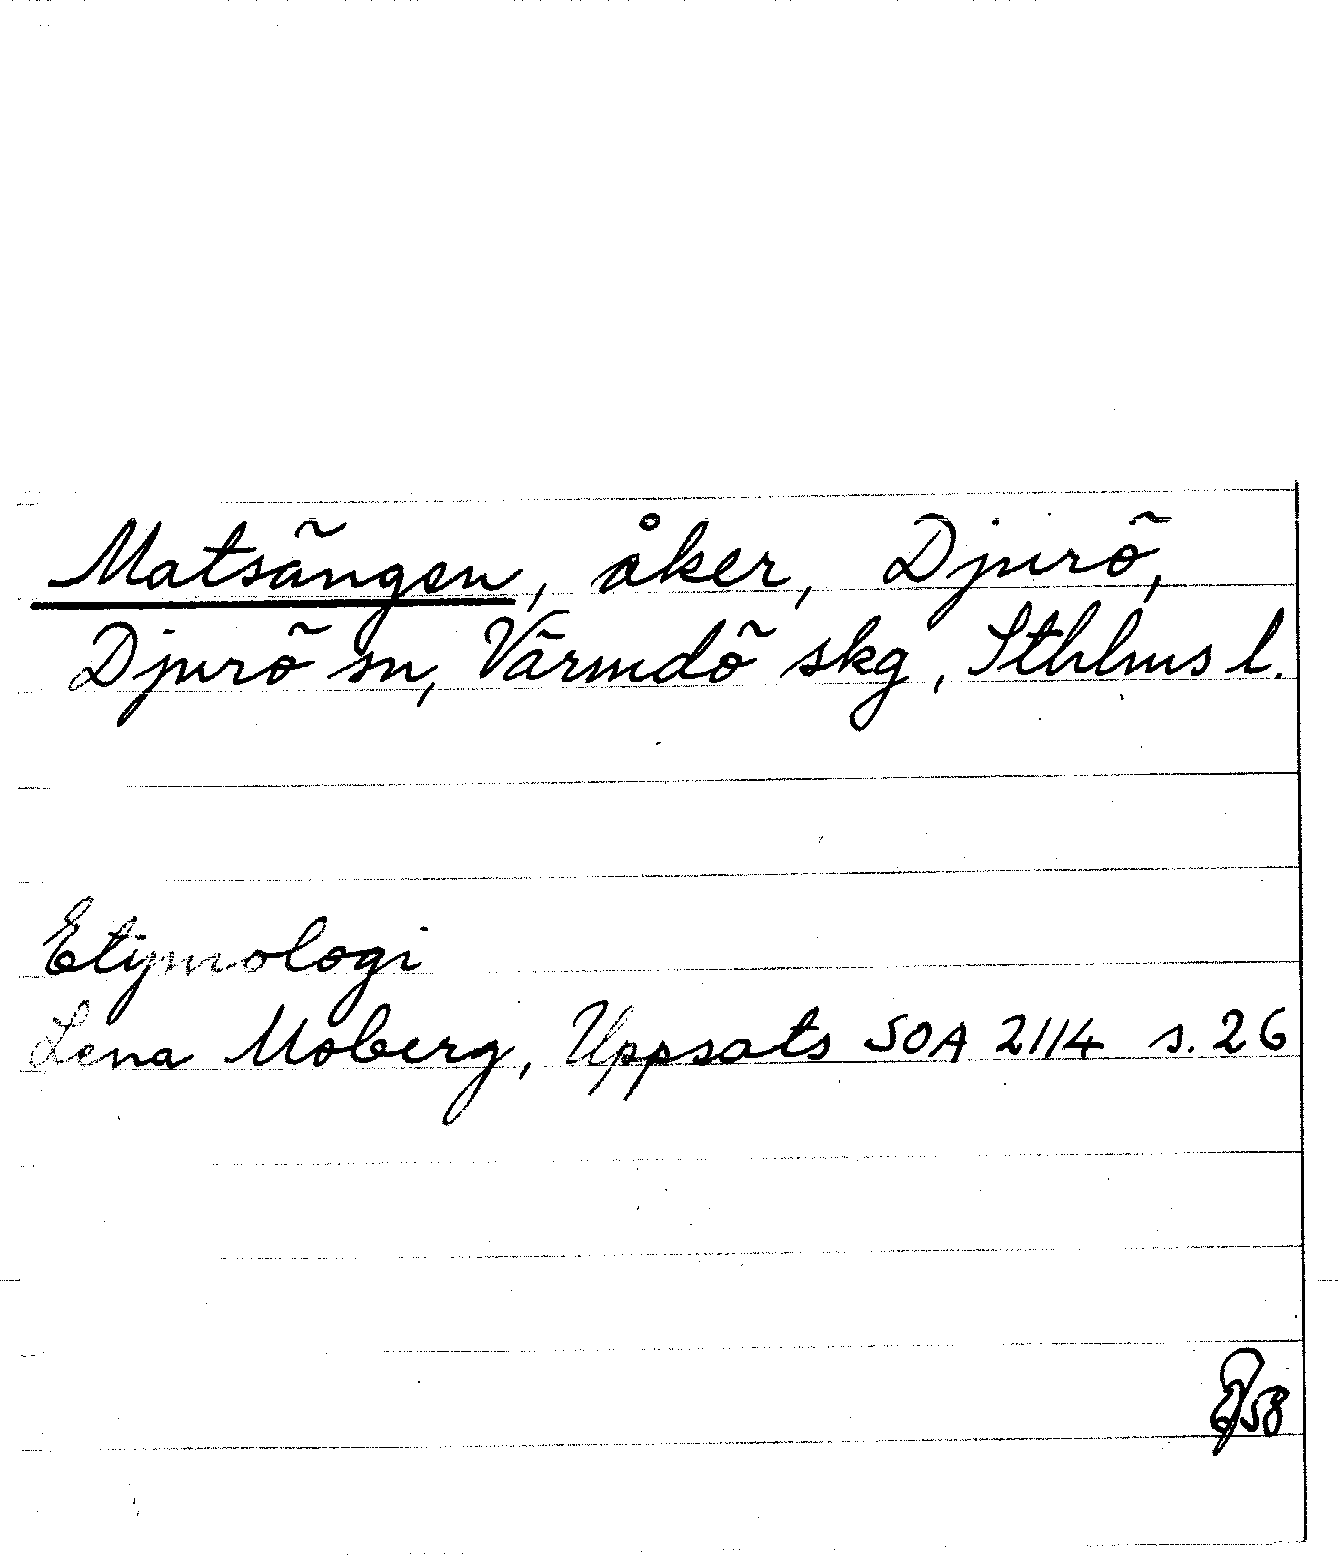 Matsängen, åker, Djurö,
Djurö sn, Värmdö skg, Sthlms l.
Etymologi
Lena Moberg, Uppsats SOA 2114 s. 26
58